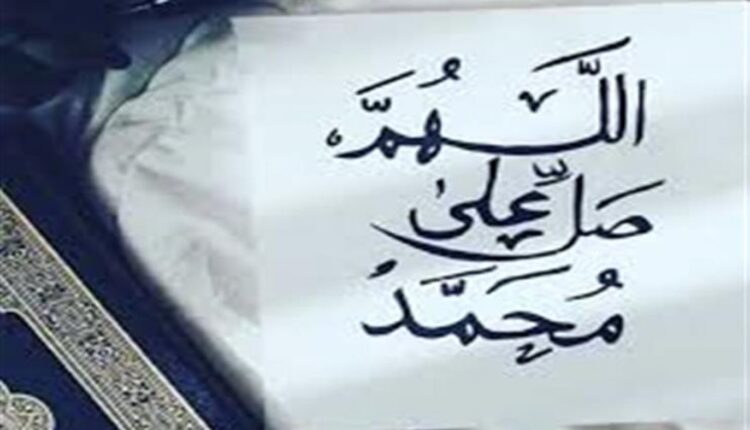 اللَّهُمَّ
صَلِّ على
مُحَمَّد